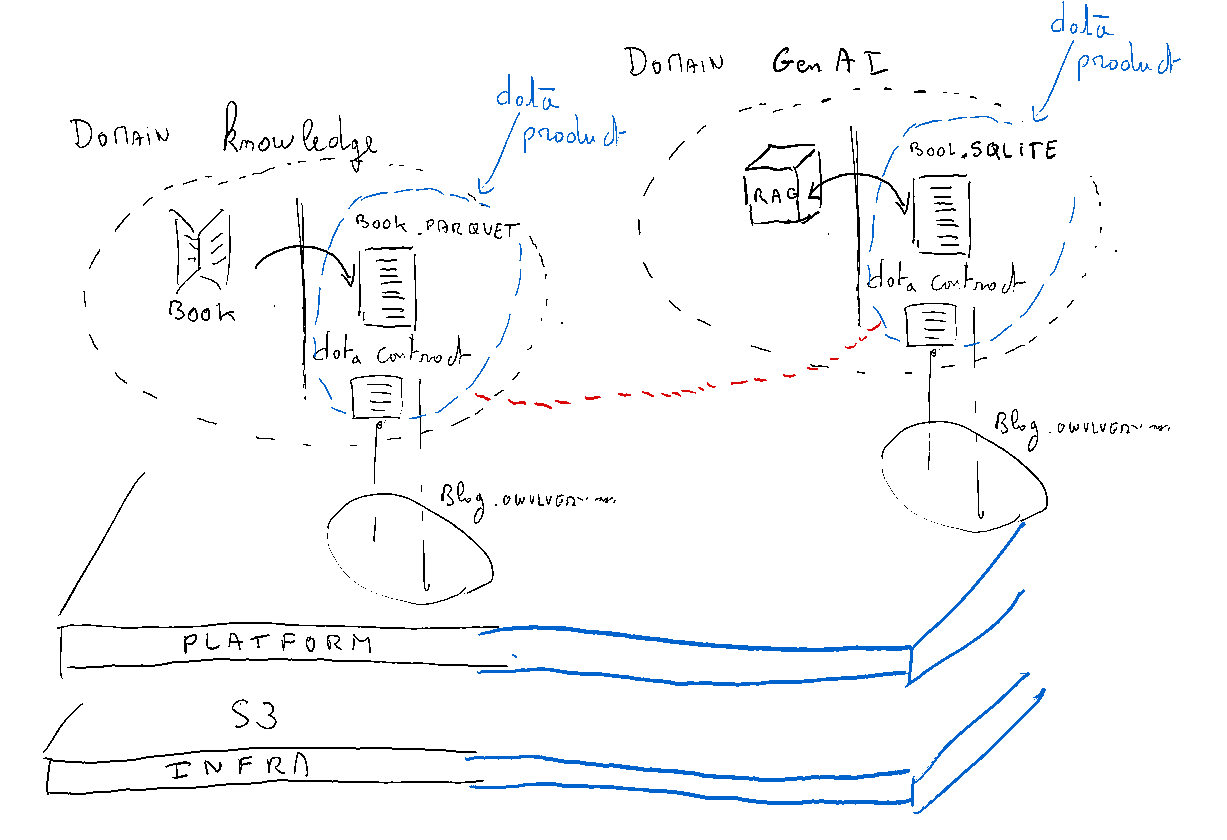 DOMAIN Knowledge
data
product
Book
Book.PARQUET
data contract
DOMAIN GenAI
data
product
RAG
Book.SQLITE
data contract
Blog.
Blog.
PLATFORM
S3
INFRA